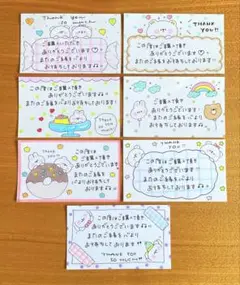 Thank you
so much
ご購入いただき
ありがとうございます♡
またのご縁を心より
お待ちしております♪♪
THANK
YOU!!
この度はご購入頂き
ありがとうございます
またのご縁を心より
お待ちしております♪♪
この度はご購入頂き
ありがとうございます!
またのご縁を心より
お待ちしております♪♪
この度はご購入頂き
ありがとうございます
またのご縁を心より
お待ちしております♪♪
THANK
YOU
この度はご購入頂き
ありがとうございます
またのご縁を心より
お待ちして
おります♪♪
THANK
YOU♡
この度はご購入頂き
ありがとうございます
またのご縁を心より
お待ちしております♪♪
この度はご購入頂き
ありがとうございます
またのご縁を心より
お待ちしております♪♪
THANK YOU
SO MUCH!!